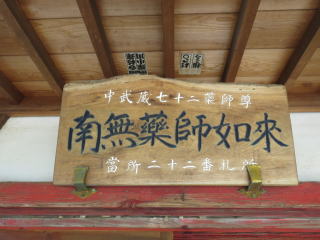 中武蔵七十二薬師尊
南無藥師如來
當所二十二番札所